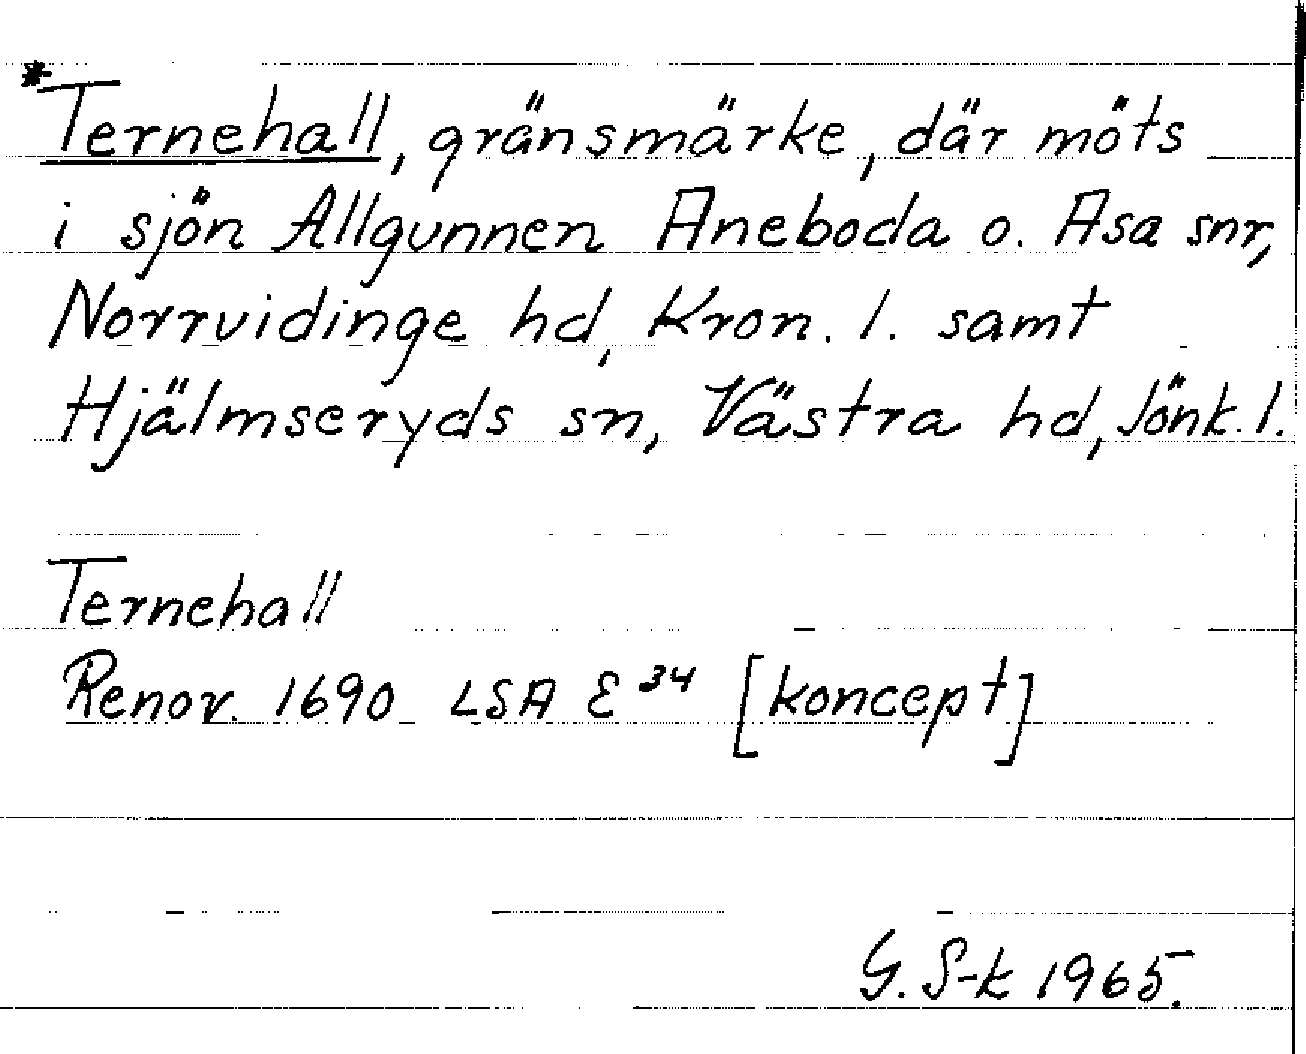 *Ternehall, gränsmärke, där möts
i sjön Allgunnen Aneboda o. Asa snr,
Norrvidinge hd, Kron. l. samt
Hjälmseryds sn, Västra hd, Jönk. l.
Ternehall
Renov. 1690 LSA E 34 [koncept]
G. S-k 1965.